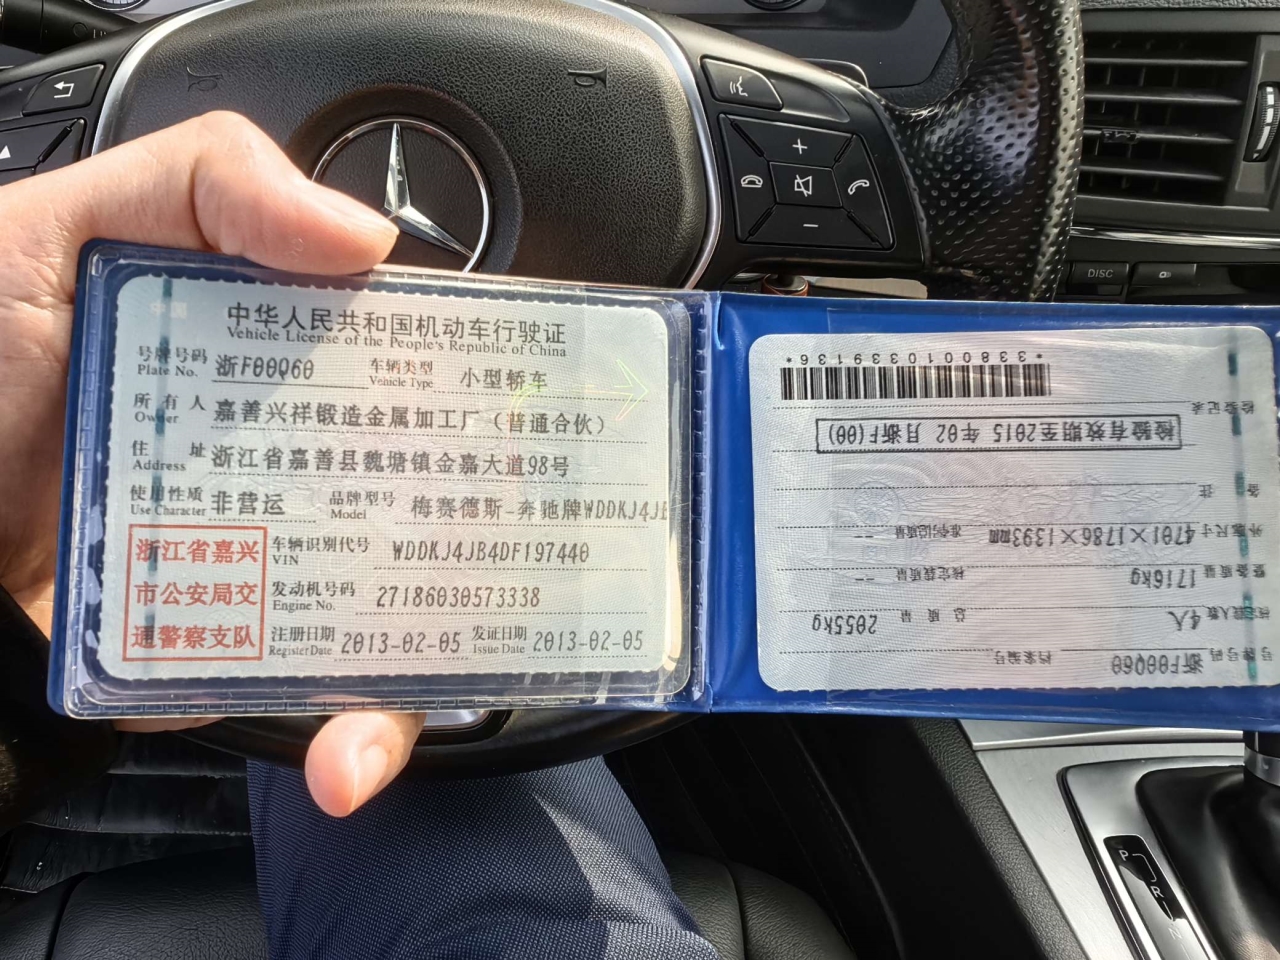 中华人民共和国机动车行驶证
Vehicle License of the People's Republic of China
号牌号码 浙F00Q60 车辆类型 小型轿车
Plate No. Vehicle Type
所有人 嘉善兴祥锻造金属加工厂（普通合伙）
Owner
住址 浙江省嘉善县魏塘镇金嘉大道98号
Address
使用性质 非营运 品牌型号 梅赛德斯-奔驰牌WDDKJ4JB
Use Character Model
浙江省嘉兴
市公安局交
通警察支队
车辆识别代号 WDDKJ4JB4DF197440
VIN
发动机号码 27186030573338
Engine No.
注册日期 2013-02-05 发证日期 2013-02-05
Register Date Issue Date
号牌号码 浙F00Q60 档案编号
核定载人数 4人 总质量 2055kg
整备质量 1716kg 核定载质量 --
外廓尺寸 4701×1786×1393mm 准牵引总质量 --
备注
检验有效期至2015年02月浙F(00)
检验记录
*3380010339136*
DISC
P
R
N